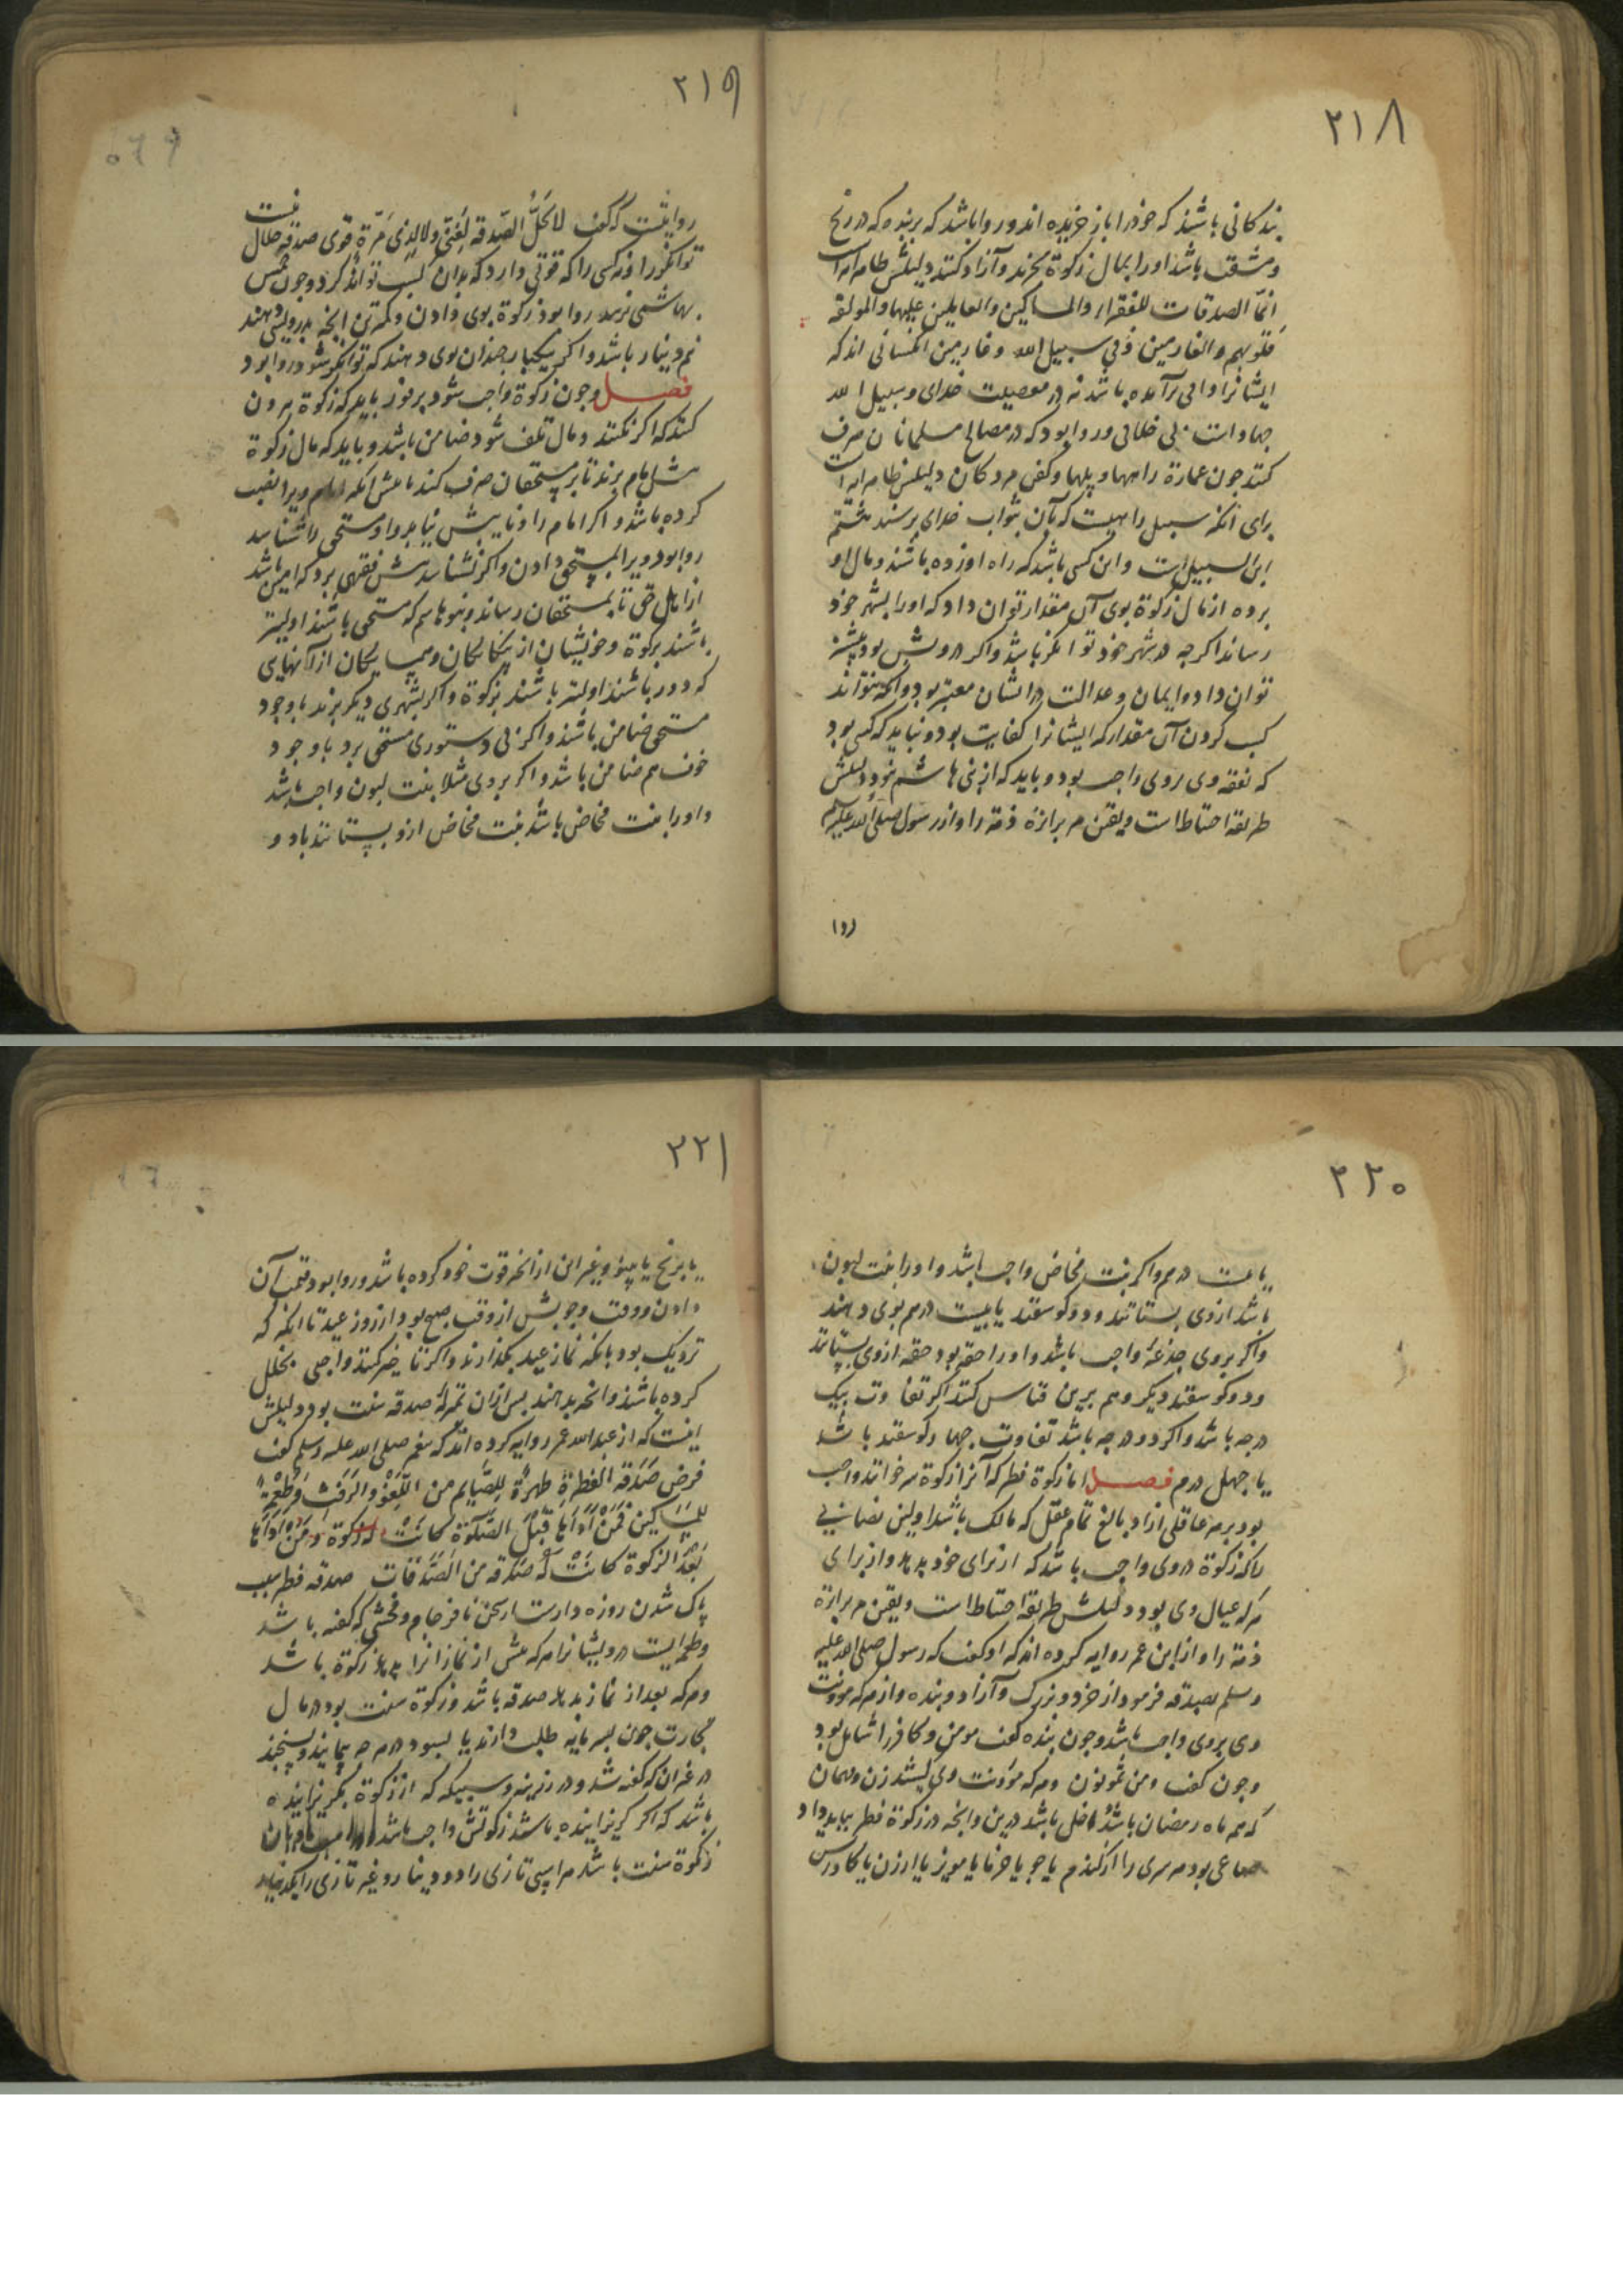 ۲۱۸
بندکانی باشند که خود را باز خریده اند و روا باشد که بربنده که در رنج
و مشقت باشد او را بمال زکوة بخرند و آزاد کنند دلیلش ظاهر آیه است
انما الصدقات للفقراء والمساکین والعاملین علیها والمولفة
قلوبهم والغارمین وفی سبیل الله و غارمین آنکسانی اند که
ایشانرا وامی برآمده باشد نه در معصیت خدای و سبیل الله
جهاد است بی خلافی و روا بود که در مصالح مسلمانان صرف
کنند چون عمارة راهها و پلها و کفن مردکان دلیلش ظاهر آیه است
برای آنکه سبیل راهیست که بآن بثواب خدای برسند هشتم
ابن السبیل است و این کسی باشد که راه او زده باشند و مال او
برده از مال زکوة بوی آن مقدار توان داد که او را بشهر خود
رساند اکرجه در شهر خود توانکر باشد و اکر درویش بود بیشتر
توان داد و ایمان و عدالت در ایشان معتبر بود و آنکه نتواند
کسب کردن آن مقدار که ایشانرا کفایت بود و نباید که کسی بود
که نفقه وی بروی واجب بود و باید که از بنی هاشم نبود دلیلش
طریقه احتیاط است و یقین مر براءة ذمه را و از رسول صلی الله علیه
(و)
۲۱۹
روایتست که کفت لا تحل الصدقة لغنی ولا لذی مرة قوی صدقه حلال نیست
توانکر را و نه کسی را که قوتی دارد که بدان کسب تواند کرد و چون خمس
بهاشمی نرسد روا بود زکوة بوی دادن و کمترین آنچه بدرویش دهند
نیم دینار باشد و اکر بیکبار چندان بوی دهند که توانکر شود روا بود
فصل و چون زکوة واجب شود بر فور باید که زکوة بیرون
کنند که اکر نکنند و مال تلف شود ضامن باشد و باید که مال زکوة
پیش امام برند تا بر مستحقان صرف کند یا پیش آنکه امام ویرا نصب
کرده باشد و اکر امام را و نایبش نیابد و او مستحق را شناسد
روا بود ویرا بمستحق دادن و اکر نشناسد پیش فقهی برد که امین باشد
از اهل حق تا بمستحقان رساند و بنو هاشم که مستحق باشند اولیتر
باشند بزکوة و خویشان از بیکانکان و همسایکان از آنهایی
که دور باشند اولیتر باشند بزکوة و اکر بشهری دیکر برند با وجود
مستحق ضامن باشد و اکر بی دستوری مستحق برد با وجود
خوف هم ضامن باشد و اکر بروی مثلا بنت لبون واجب باشد
و او را بنت مخاض باشد بنت مخاض ازو بستانند باد و
۲۲۰
یا بیست درم و اکر بنت مخاض واجب باشد و او را بنت لبون
باشد از وی بستانند و دو کوسفند یا بیست درم بوی دهند
و اکر بروی جذعه واجب باشد و او را حقه بود حقه از وی بستانند
و دو کوسفند دیکر و هم برین قیاس کنند اکر تفاوت بیک
درجه باشد و اکر دو درجه باشد تفاوت چهار کوسفند باشد
یا چهل درم فصل اما زکوة فطر که آنرا زکوة سر خوانند واجب
بود بر هر عاقلی آزاد بالغ تمام عقل که مالک باشد اولین نصابی
را که زکوة در وی واجب باشد که از برای خود بدهد و از برای
هر که عیال وی بود دلیلش طریقه احتیاط است و یقین مر براءة
ذمه را و از ابن عمر روایه کرده اند که او کفت که رسول صلی الله علیه
و سلم بصدقه فرمود از خرد و بزرک و آزاد و بنده و از هر که مؤونت
وی بروی واجب باشد و چون بنده کفت مومن و کافر را شامل بود
و چون کفت و من تمونون و هر که مؤونت وی کشند زن و مهمان
که همه ماه رمضان باشد داخل باشد درین و آنچه در زکوة فطر بباید داد
صاعی بود مر سری را از کندم یا جو یا خرما یا مویز یا ارزن یا کاورس
۲۲۱
یا برنج یا پینو و غیر این از آنچه قوت خود کرده باشد و روا بود قیمت آن
دادن و وقت وجوبش از وقت صبح بود از روز عید تا آنکه که
نزدیک بود بآنکه نماز عید بکذارند و اکر تاخیر کنند واجبی بخلل
کرده باشند و آنچه بدهند پس از آن بمنزله صدقه سنت بود دلیلش
اینست که از عبدالله عمر روایه کرده اند که پیغمبر صلی الله علیه وسلم کفت
فرض صدقة الفطرة طهرة للصایم من اللغو والرفث وطعمة
للمساکین فمن اداها قبل الصلوة کانت له زکوة ومن اداها
بعد الزکوة کانت له صدقة من الصدقات صدقه فطر سبب
پاک شدن روزه دار است از سخن نافرجام و فحشی که کفته باشد
و طعمه ایست درویشانرا هر که پیش از نماز آنرا بدهد زکوة باشد
و هر که بعد از نماز بدهد صدقه باشد و زکوة سنت بود در مال
تجارت چون بسرمایه طلب دارند یا بسود در هرچه پیمایند و بسنجند
در غیر آن که کفته شد و در زرینه و سیمینه که از زکوة بکریزانیده
باشد که اکر کریزانیده باشد زکوتش واجب باشد و
زکوة سنت باشد هر اسبی تازی را دو دینار و غیر تازی را یکدینار